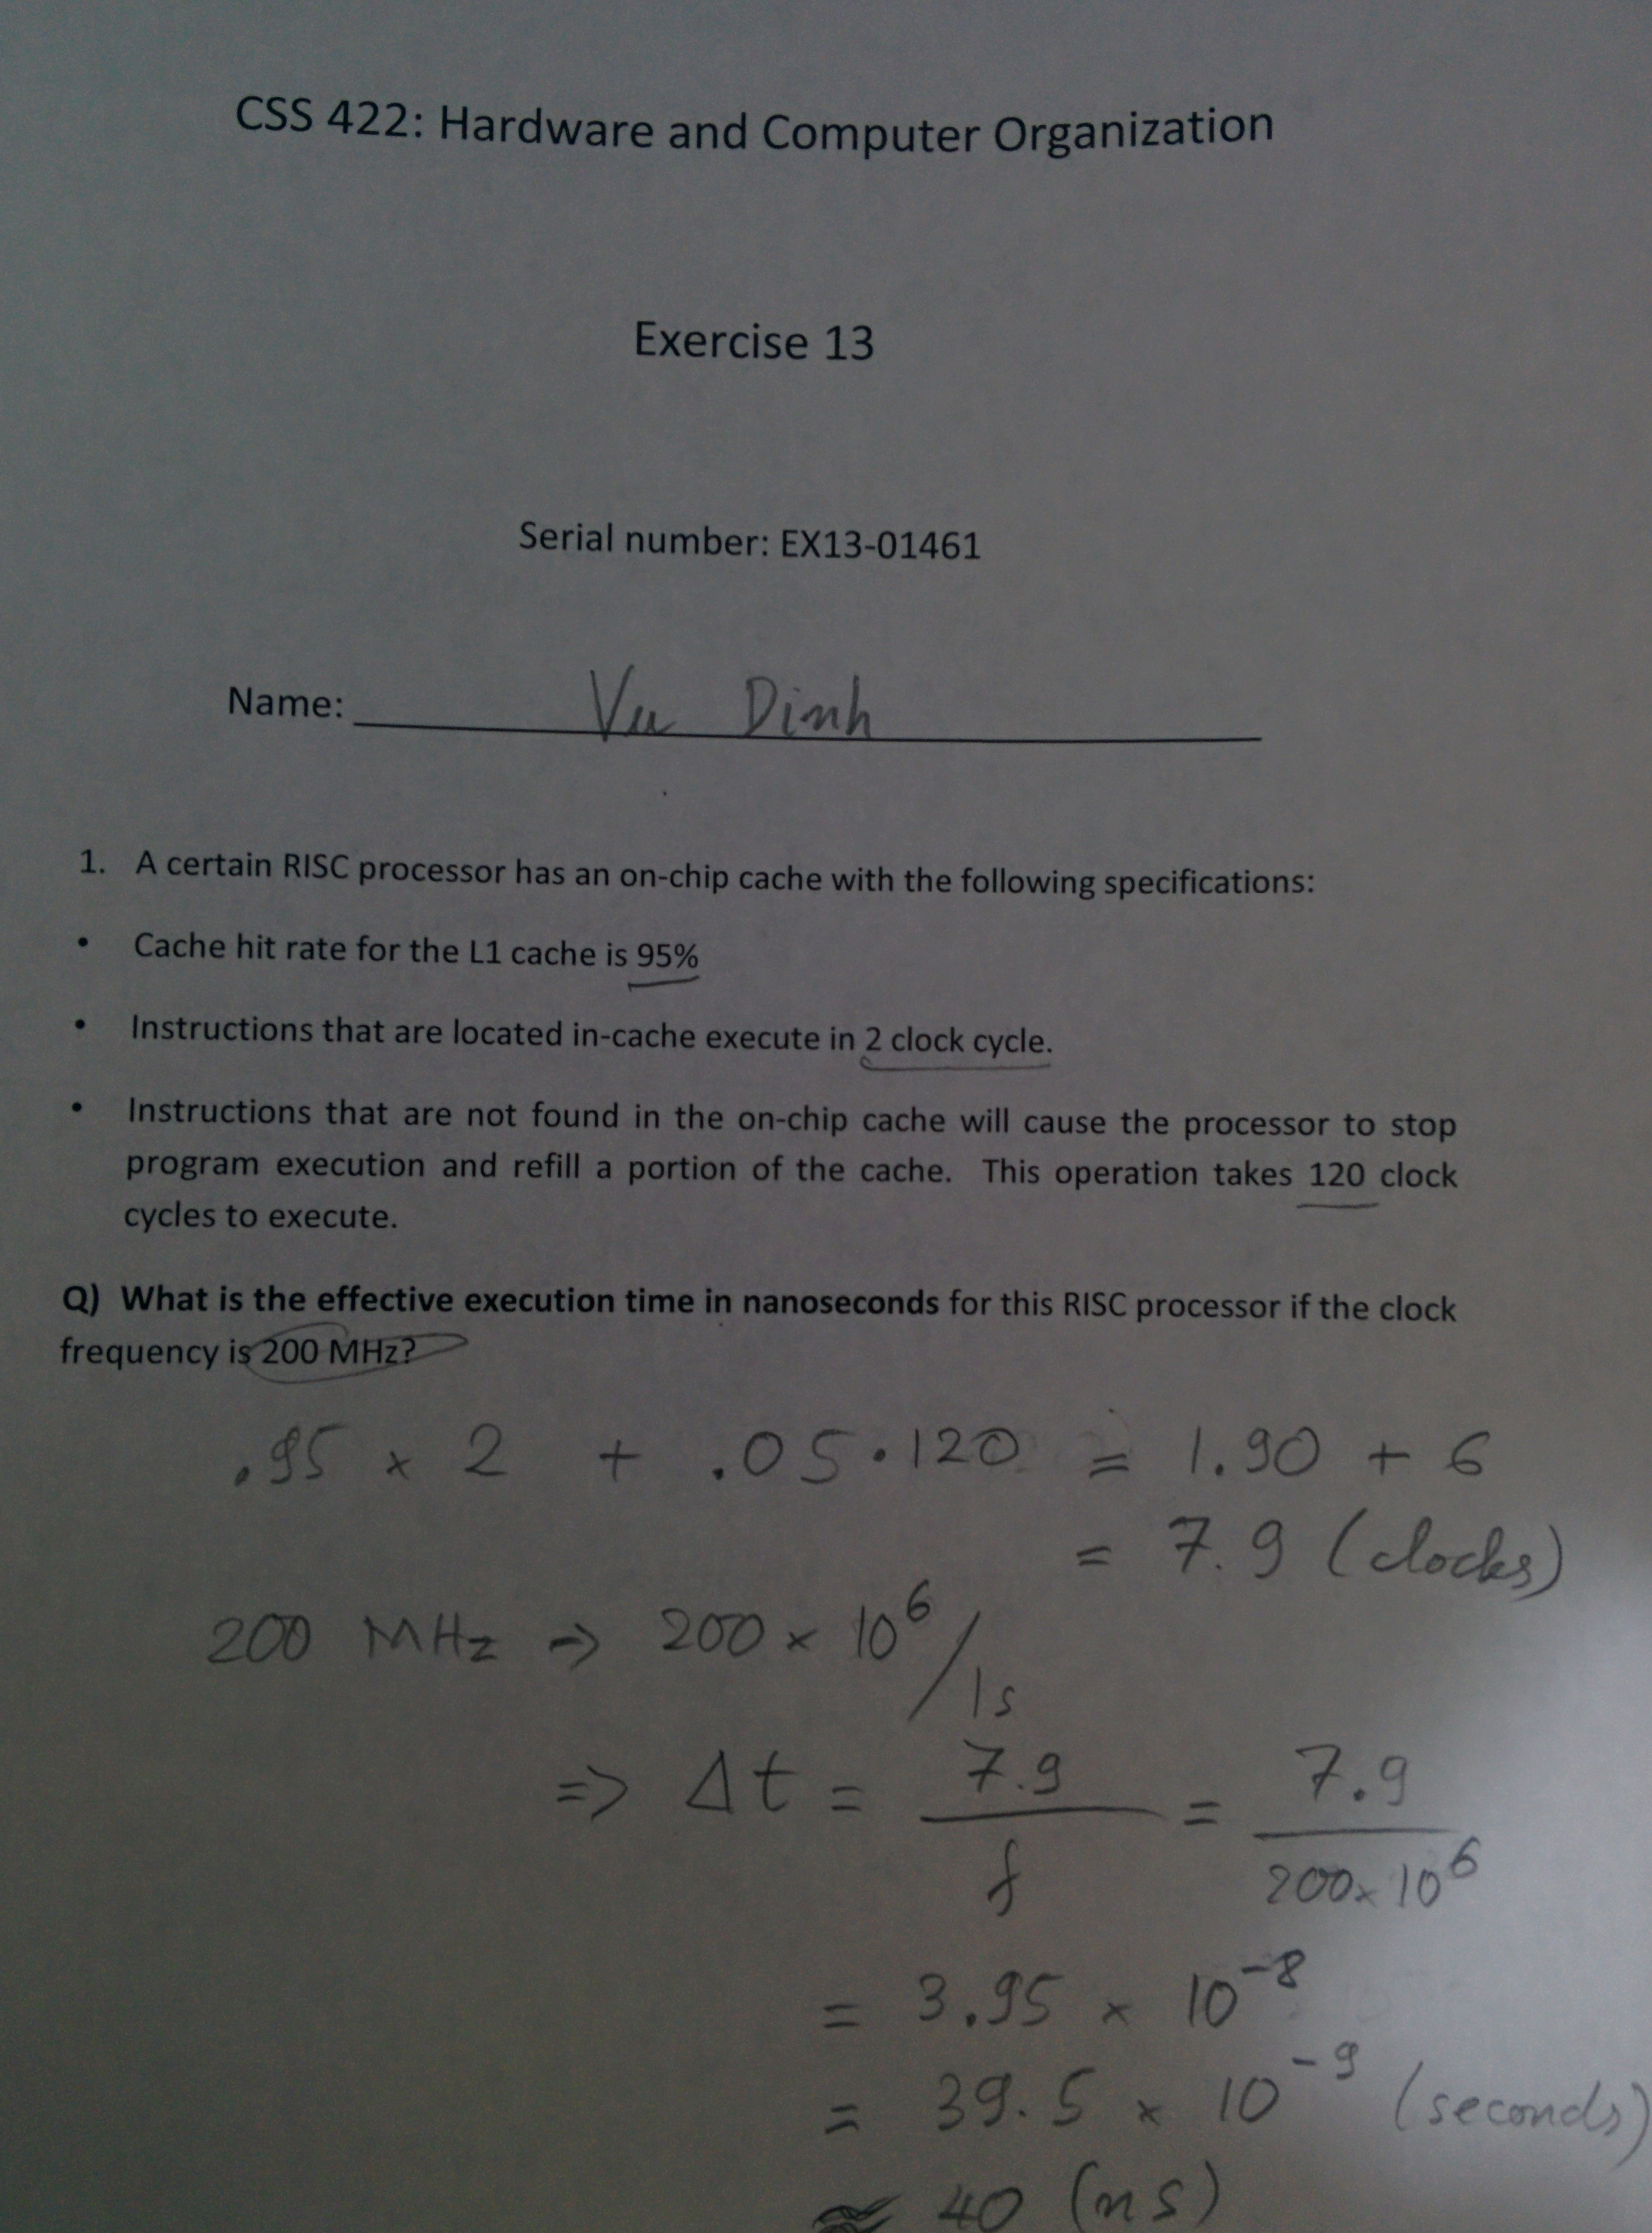 CSS 422: Hardware and Computer Organization
Exercise 13
Serial number: EX13-01461
Name: Vu Dinh
1. A certain RISC processor has an on-chip cache with the following specifications:
• Cache hit rate for the L1 cache is 95%
• Instructions that are located in-cache execute in 2 clock cycle.
• Instructions that are not found in the on-chip cache will cause the processor to stop
program execution and refill a portion of the cache. This operation takes 120 clock
cycles to execute.
Q) What is the effective execution time in nanoseconds for this RISC processor if the clock
frequency is 200 MHz?
.95 × 2 + .05 · 120 = 1.90 + 6
= 7.9 (clocks)
200 MHz ⇒ 200 × 10⁶ / 1s
⇒ Δt = 7.9 / f = 7.9 / 200 × 10⁶
= 3.95 × 10⁻⁸
= 39.5 × 10⁻⁹ (seconds)
≈ 40 (ns)